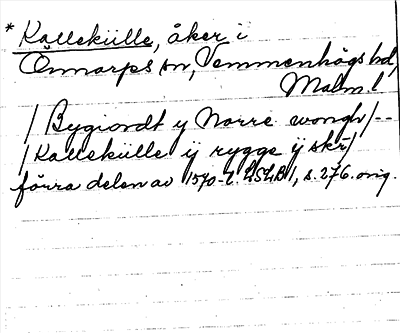 * Kallekülle, åker i
Önnarps sn, Vemmenhögs hd,
Malm. l
/ Bygiordt y Norre wongh /--
/ Kallekülle ij rygge ij skr/
förra delen av 1570-t. LSLB 1, s. 276. orig.